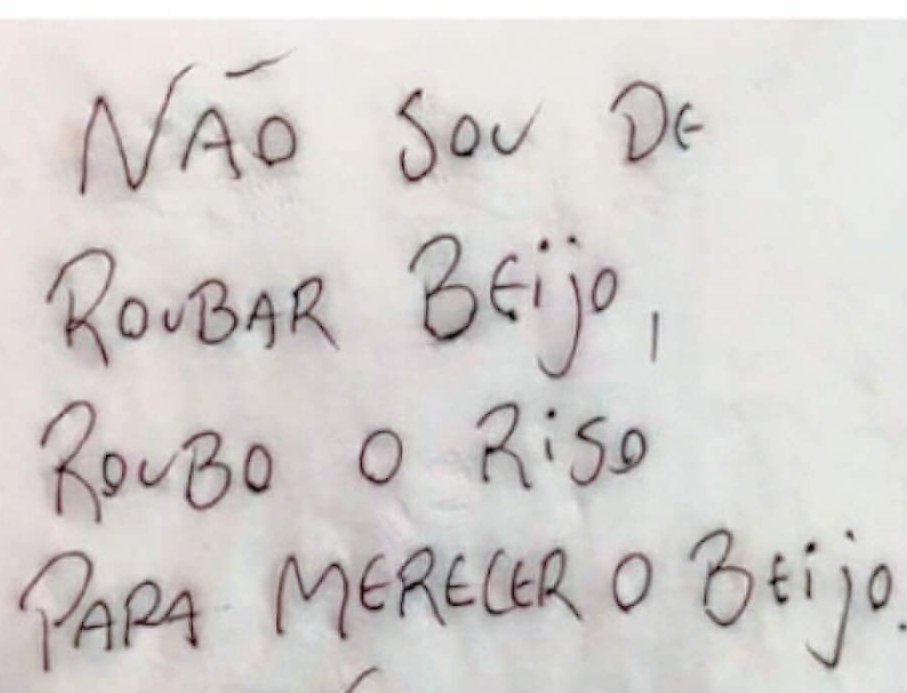 NÃO SOU DE
ROUBAR BEijO,
ROUBO O RiSO
PARA MERECER O BEijO.